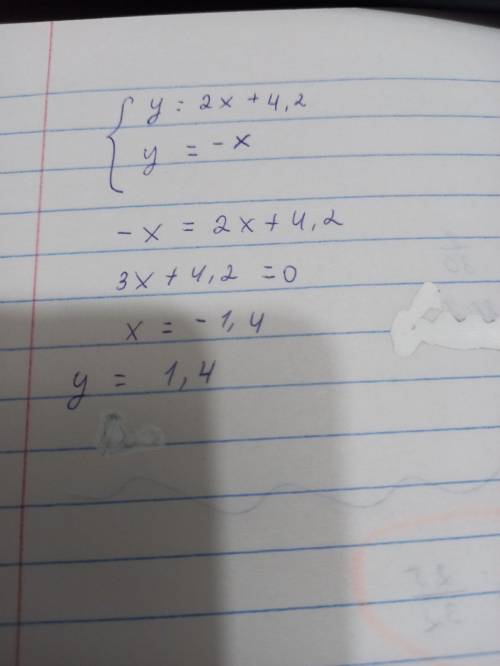 { y = 2x + 4,2
y = -x
-x = 2x + 4,2
3x + 4,2 = 0
x = -1,4
y = 1,4